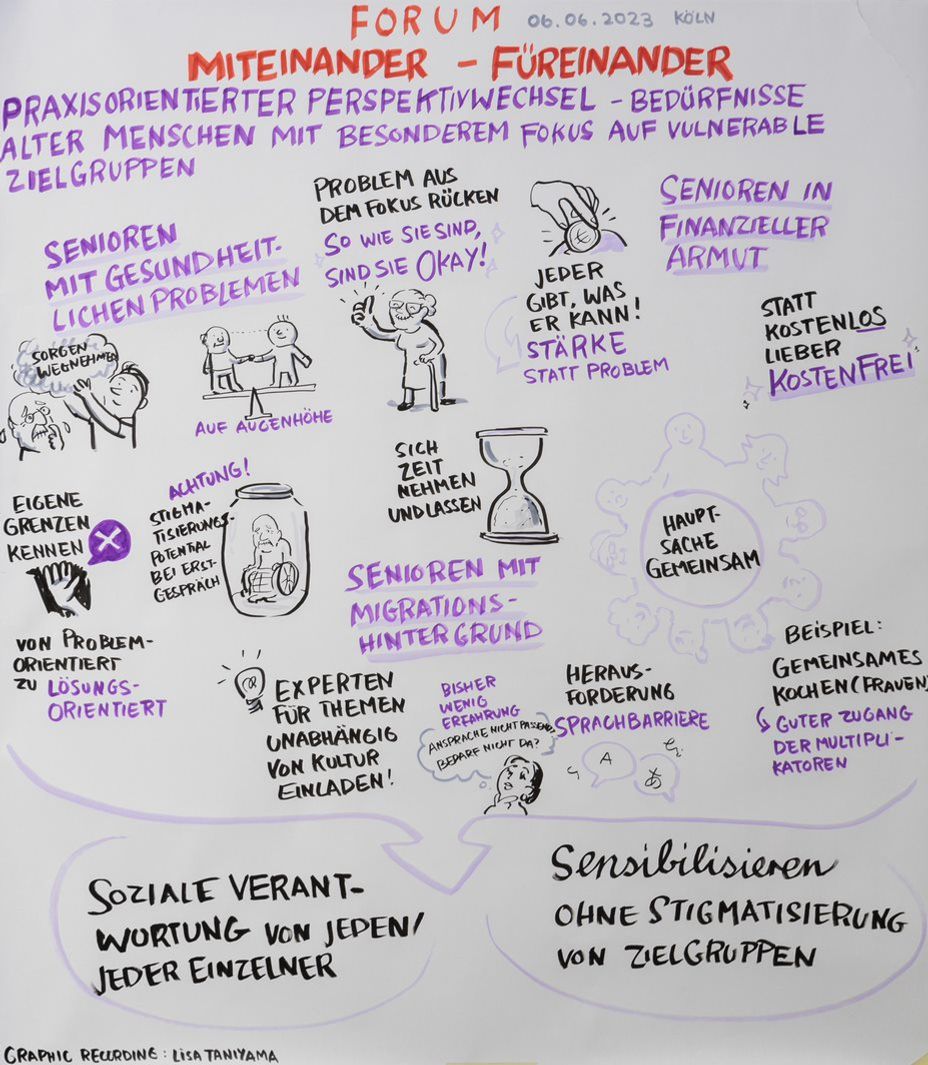 FORUM 06.06.2023 KÖLN
MITEINANDER - FÜREINANDER
PRAXISORIENTIERTER PERSPEKTIVWECHSEL - BEDÜRFNISSE
ALTER MENSCHEN MIT BESONDEREM FOKUS AUF VULNERABLE
ZIELGRUPPEN
SENIOREN
MIT GESUNDHEIT-
LICHEN PROBLEMEN
SORGEN
WEGNEHMEN
AUF AUGENHÖHE
PROBLEM AUS
DEM FOKUS RÜCKEN
SO WIE SIE SIND,
SIND SIE OKAY!
€
JEDER
GIBT, WAS
ER KANN!
STÄRKE
STATT PROBLEM
SENIOREN IN
FINANZIELLER
ARMUT
STATT
KOSTENLOS
LIEBER
KOSTENFREI
EIGENE
GRENZEN
KENNEN
X
ACHTUNG!
STIGMA-
TISIERUNGS-
POTENTIAL
BEI ERST-
GESPRÄCH
SICH
ZEIT
NEHMEN
UND LASSEN
HAUPT-
SACHE
GEMEINSAM
VON PROBLEM-
ORIENTIERT
ZU LÖSUNGS-
ORIENTIERT
SENIOREN MIT
MIGRATIONS-
HINTERGRUND
EXPERTEN
FÜR THEMEN
UNABHÄNGIG
VON KULTUR
EINLADEN!
BISHER
WENIG
ERFAHRUNG
ANSPRACHE NICHT PASSEND?
BEDARF NICHT DA?
HERAUS-
FORDERUNG
SPRACHBARRIERE
A
あ
BEISPIEL:
GEMEINSAMES
KOCHEN (FRAUEN)
GUTER ZUGANG
DER MULTIPLI-
KATOREN
SOZIALE VERANT-
WORTUNG VON JEDEN/
JEDER EINZELNER
Sensibilisieren
OHNE STIGMATISIERUNG
VON ZIELGRUPPEN
GRAPHIC RECORDING: LISA TANIYAMA